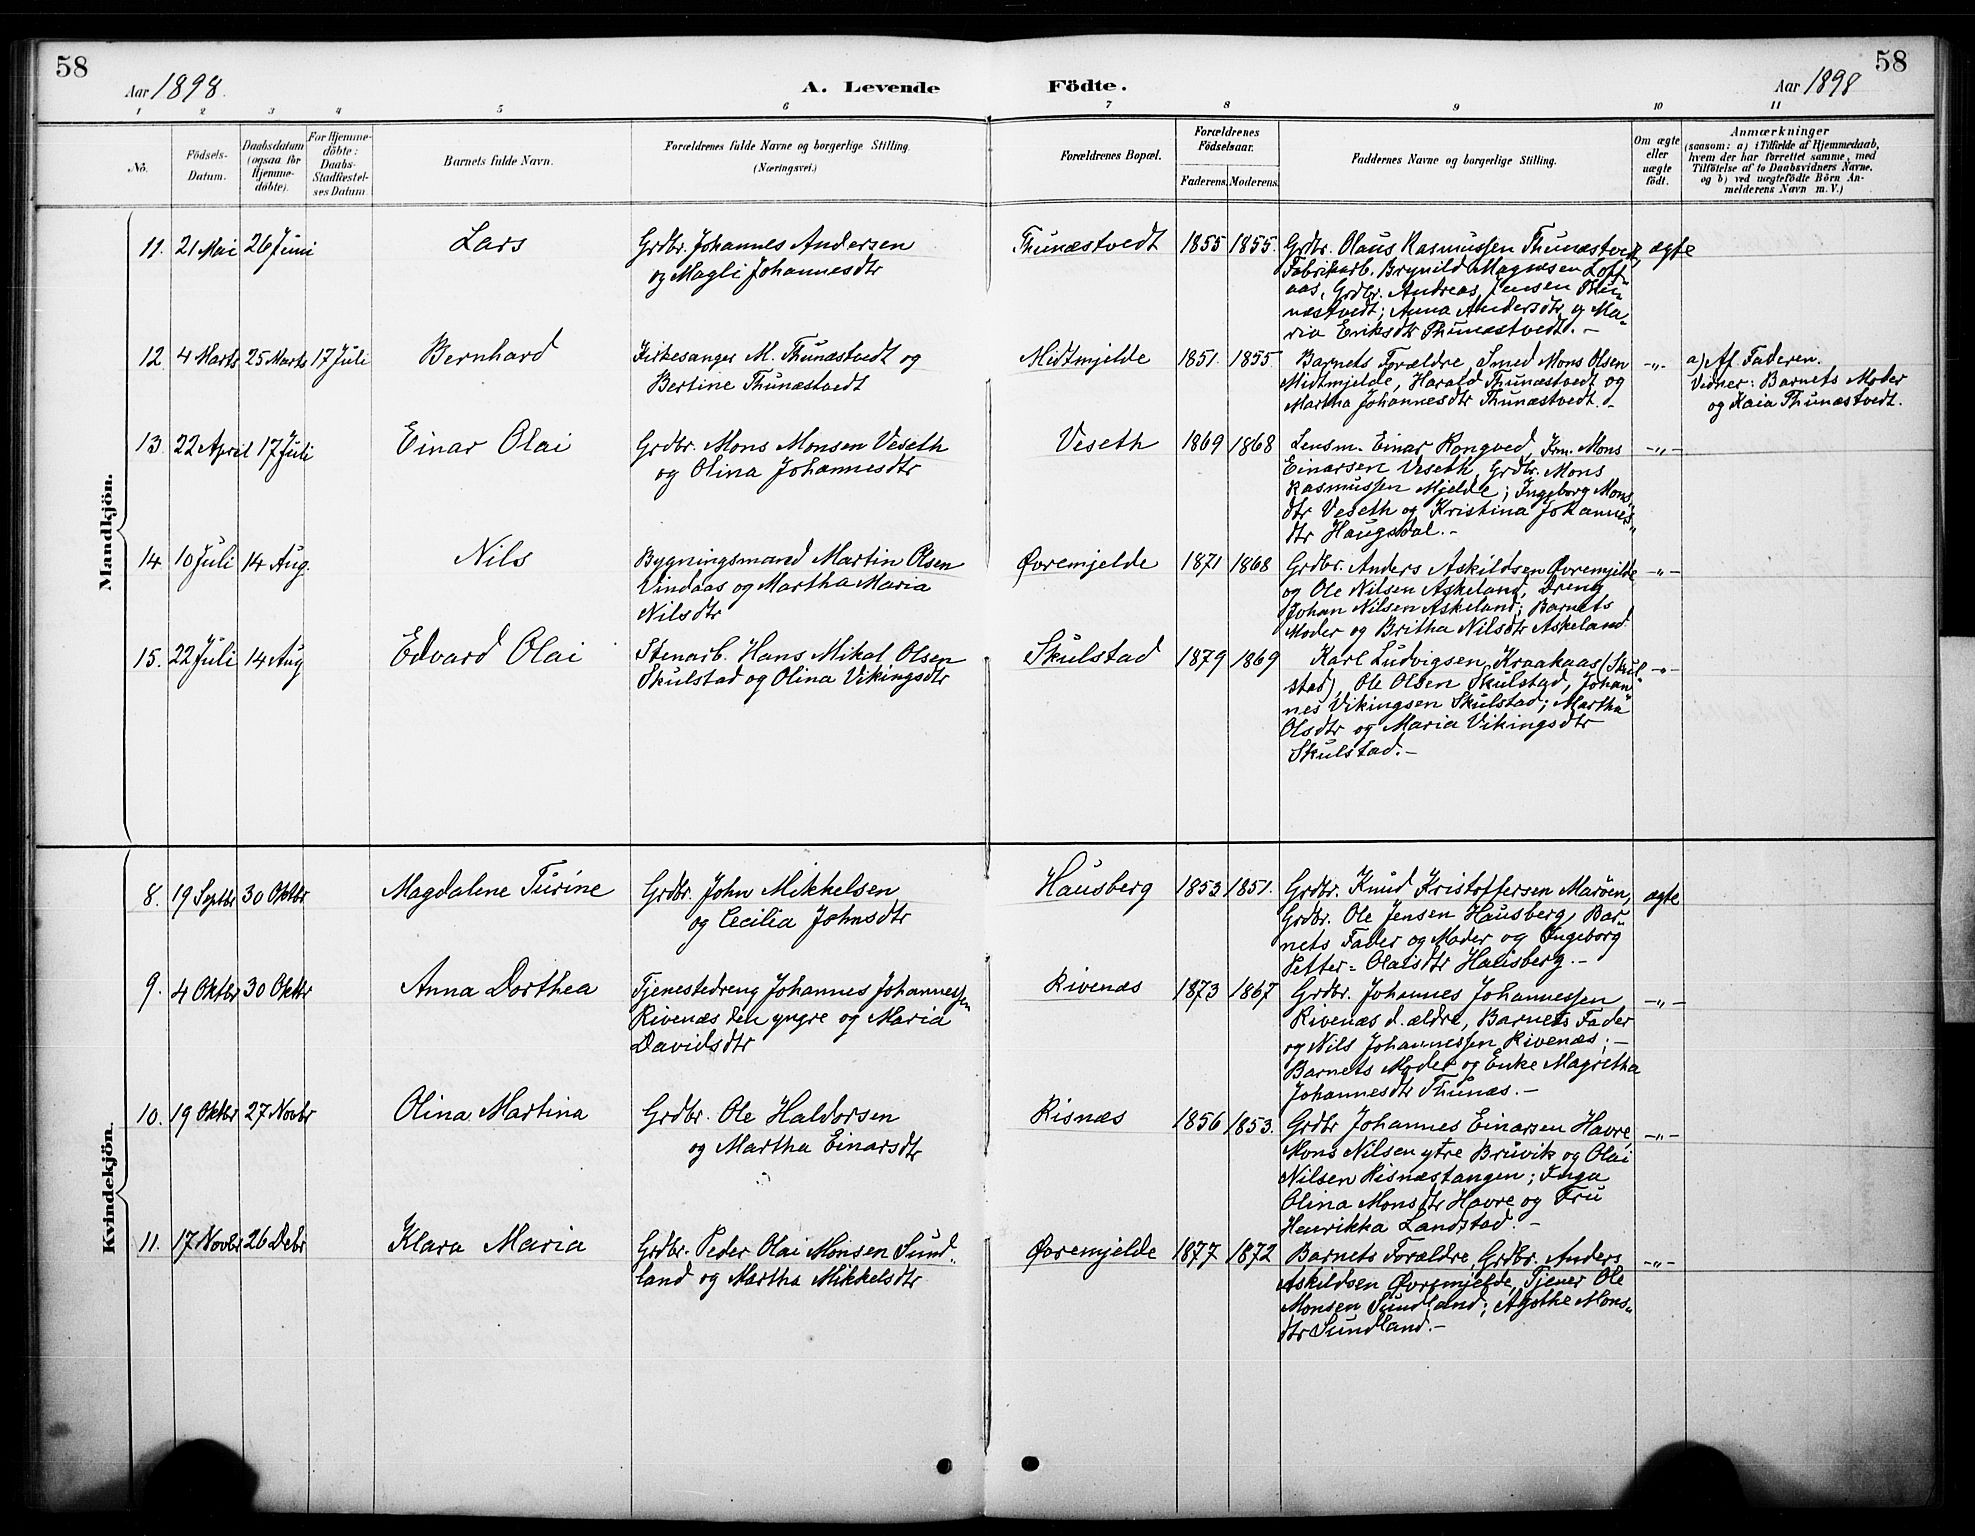 58
58
Aar 1898.
A. Levende
Födte.
Aar 1898
1 2 3 4 5 6 7 8 9 10 11
No.
Födsels-
Datum.
Daabsdatum
(ogsaa for
Hjemme-
döbte).
For Hjemme-
döbte:
Daabs-
Stadfæstel-
ses Datum
Barnets fulde Navn.
Forældrenes fulde Navne og borgerlige Stilling.
(Næringsvei.)
Forældrenes Bopæl.
Forældrenes
Födselsaar.
Faderens. Moderens.
Faddernes Navne og borgerlige Stilling.
Om ægte
eller
uægte
födt.
Anmærkninger
(saasom: a) i Tilfælde af Hjemmedaab,
hvem der har forrettet samme, med
Tilföielse af to Daabsvidners Navne.
og b) ved uægtefödte Börn An-
melderens Navn m. V.)
Mandkjön.
11. 21 Mai 26 Juni Lars
Grdbr. Johannes Andersen
og Magli Johannesdtr
Thunæstvedt 1855 1855.
Grdbr. Olaus Rasmussen Thunæstvedt,
Fabrikarb. Brynild Magnesen Loft-
aas, Grdbr. Andreas Jensen Thu-
næstvedt; Anna Andersdtr og Ma-
ria Eriksdtr Thunæstvedt. -
ægte
12. 4 Marts 25 Marts 17 Juli Bernhard
Kirkesanger M. Thunæstvedt og
Bertine Thunæstvedt
Midtmjelde 1851. 1855
Barnets Forældre, Smed Mons Olsen
Midtmjelde, Harald Thunæstvedt og
Martha Johannesdtr Thunæstvedt. -
-"-
a) Af Faderen.
Vidner: Barnets Moder
og Kaia Thunæstvedt.
13. 22 April 17 Juli Einar Olai
Grdbr. Mons Monsen Veseth
og Olina Johannesdtr
Veseth 1869 1868
Lensm. Einar Rongved, Frm. Mons
Einarsen Veseth, Grdbr. Mons
Rasmussen Mjelde; Ingeborg Mons-
dtr Veseth og Kristina Johannes-
dtr Haugsdal. -
-"-
14. 10 Juli 14 Aug. Nils
Bygningsmand Martin Olsen
Vindaas og Martha Maria
Nilsdtr
Øvremjelde 1871 1868
Grdbr. Anders Askildsen Øvremjelde
og Ole Nilsen Askeland, Dreng
Johan Nilsen Askeland; Barnets
Moder og Britha Nilsdtr Askeland.
-"-
15. 22 Juli 14 Aug Edvard Olai
Stenarb. Hans Mikal Olsen
Skulstad og Olina Vikingsdtr
Skulstad 1879 1869
Karl Ludvigsen Kraakaas (Skul-
stad), Ole Olsen Skulstad, Johan-
nes Vikingsen Skulstad; Martha
Olsdtr og Maria Vikingsdtr
Skulstad. -
-"-
Kvindekjön.
8. 19 Septbr 30 Oktbr Magdalene Turine
Grdbr. John Mikkelsen
og Cecilia Johnsdtr
Hausberg 1853 1851.
Grdbr. Knud Kristoffersen Marøen,
Grdbr. Ole Jensen Hausberg, Bar-
nets Fader og Moder og Ingeborg
Petter-Olaisdtr Hausberg. -
ægte
9. 4 Oktbr 30 Oktbr Anna Dorthea
Tjenestedreng Johannes Johannessen
Rivenæs den yngre og Maria
Davidsdtr
Rivenæs 1873 1867
Grdbr. Johannes Johannessen
Rivenæs d. ældre, Barnets Fader
og Nils Johannessen Rivenæs; -
Barnets Moder og Enke Magretha
Johannesdtr Thunæs. -
-"-
10. 19 Oktbr 27 Novbr Olina Martina
Grdbr. Ole Haldorsen
og Martha Einarsdtr
Risnæs 1856 1853.
Grdbr Johannes Einarsen Havre,
Mons Nilsen ytre Bruvik og Olai
Nilsen Risnæstangen; Inga
Olina Monsdtr Havre og Fru
Henrikka Landstad. -
-"-
11. 17 Novbr 26 Debr Klara Maria
Grdbr. Peder Olai Monsen Sund-
land og Martha Mikkelsdtr
Øvremjelde 1877 1872
Barnets Forældre, Grdbr. Anders
Askildsen Øvremjelde, Tjener Ole
Monsen Sundland; Agothe Mons-
dtr Sundland. -
-"-